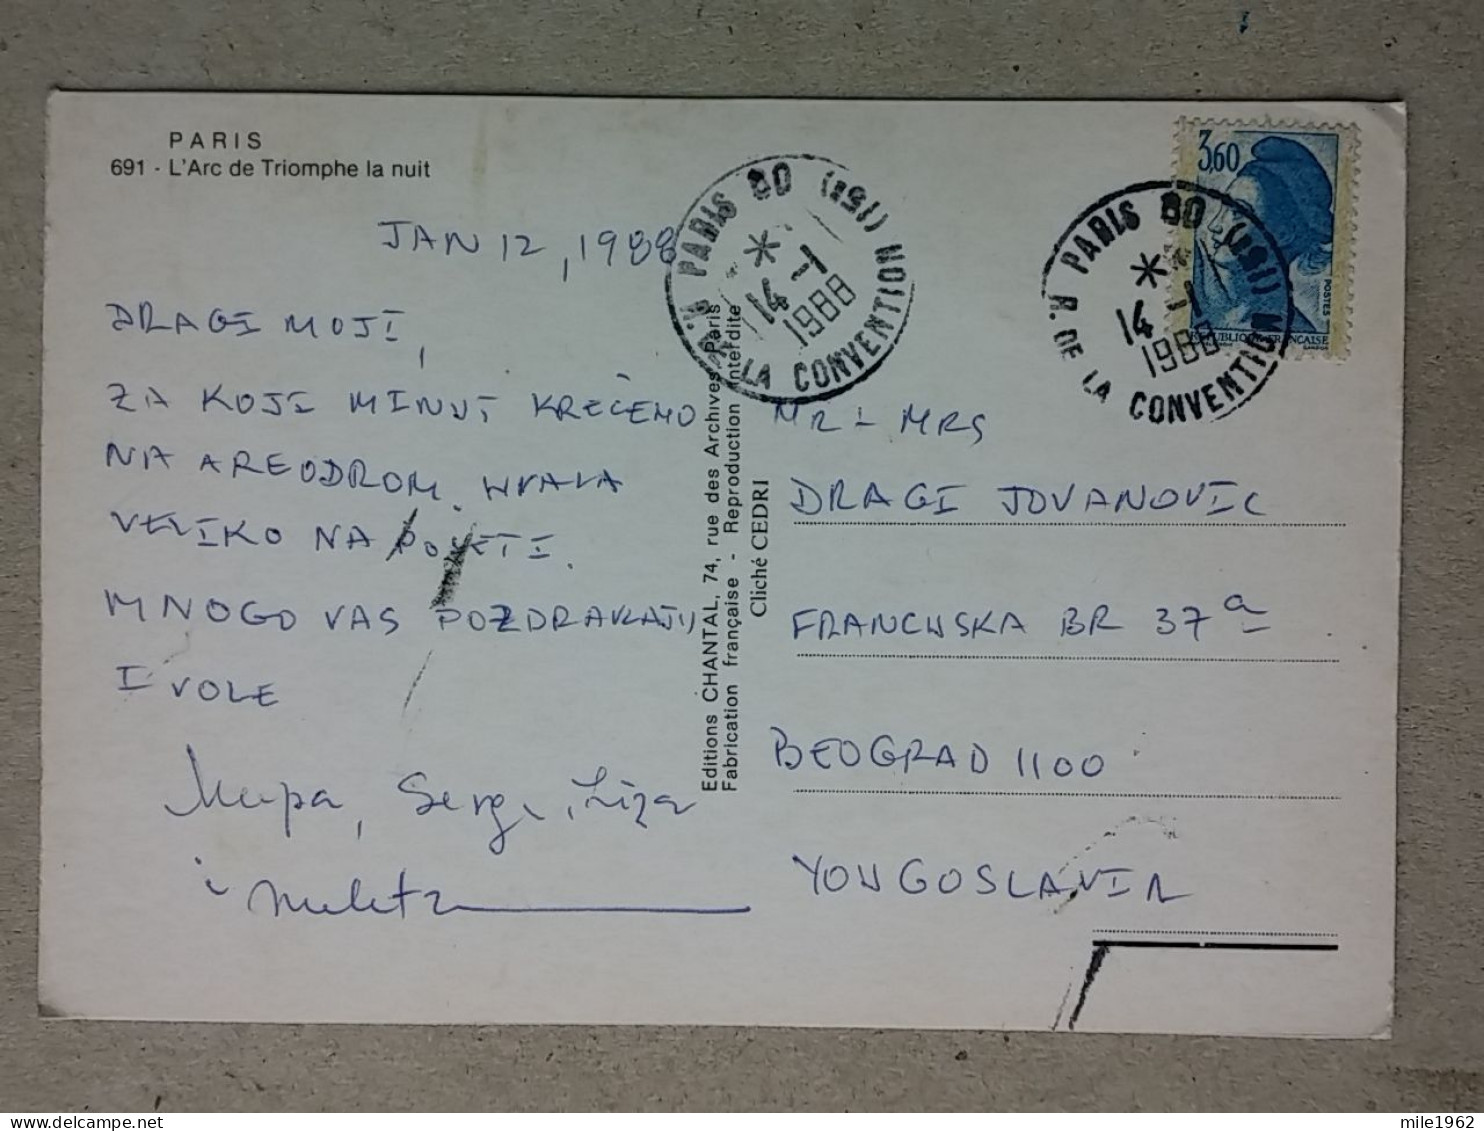 PARIS
691 - L'Arc de Triomphe la nuit
JAN 12, 1988
DRAGI MOJI,
ZA KOJI MINUT KREĆEMO
NA AREODROM. HVALA
VELIKO NA POSETI.
MNOGO VAS POZDRAVLAJU
I VOLE
Мира, Serge, Liza
i
Editions CHANTAL, 74, rue des Archives - Paris
Fabrication française - Reproduction interdite
Cliché CEDRI
PARIS 80 (151) R. DE LA CONVENTION
*
14 -1
1988
3,60
POSTES
REPUBLIQUE FRANÇAISE
PARIS 80 (151) R. DE LA CONVENTION
*
14 -1
1988
MR + MRS
DRAGI JOVANOVIC
FRANCUSKA BR 37a
BEOGRAD 1100
YOUGOSLAVIA
mile1962